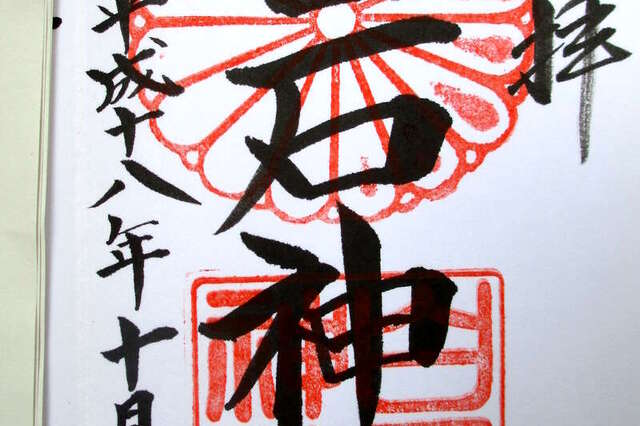 拝
石神
平成十八年十月